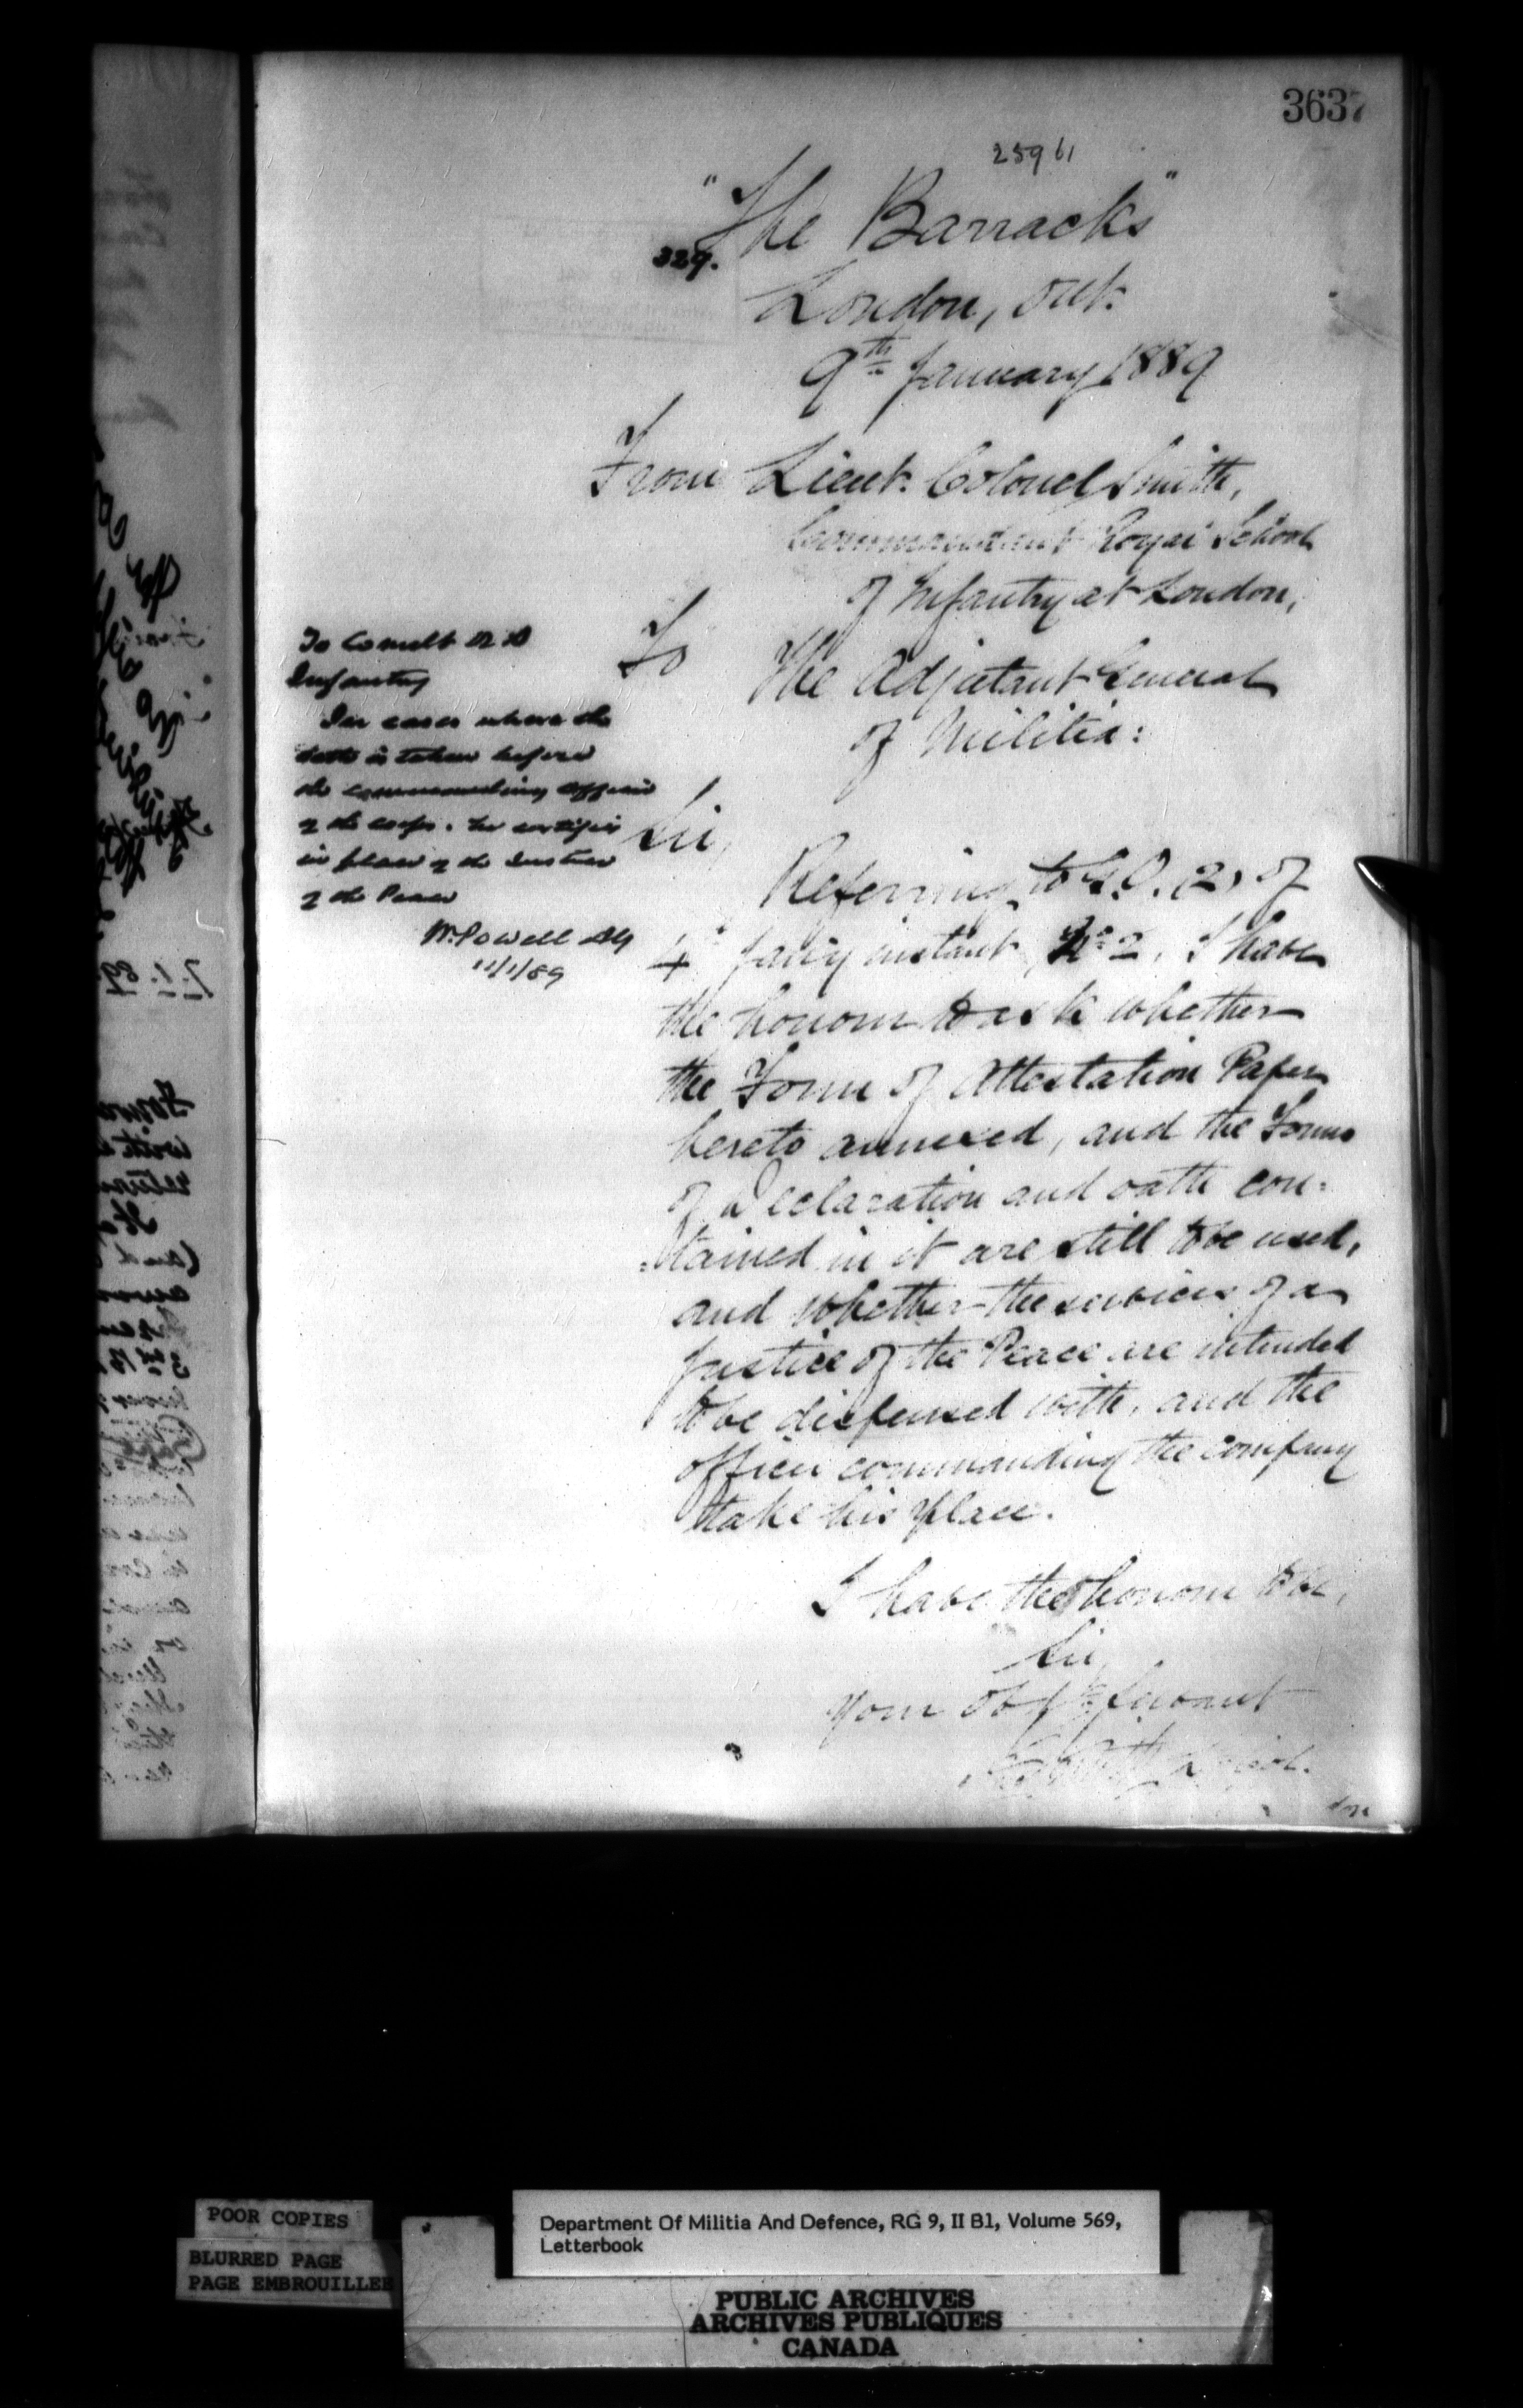 3637
25961
"The Barracks"
329.
London, Ont.
9th January 1889
From Lieut. Colonel Smith,
Commandant Royal School
of Infantry at London,
To
The Adjutant General
of Militia:
Sir,
Referring to G.O. (2) of
4th Jany instant, No 2, I have
the honour to ask whether
the Form of Attestation Paper
hereto annexed, and the Forms
of Declaration and oath con-
-tained in it are still to be used,
and whether the services of a
Justice of the Peace are intended
to be dispensed with, and the
officer commanding the company
take his place.
I have the honour to be,
Sir,
Your Obdt Servant
Smith Lt. Col.
Infantry
In cases where the
oath is taken before
the commanding officer
of the corps. he certifies
in place of the Justice
of the Peace
W. Powell AG
11/1/89
7.1.89
POOR COPIES
BLURRED PAGE
PAGE EMBROUILLEE
Department Of Militia And Defence, RG 9, II B1, Volume 569,
Letterbook
PUBLIC ARCHIVES
ARCHIVES PUBLIQUES
CANADA